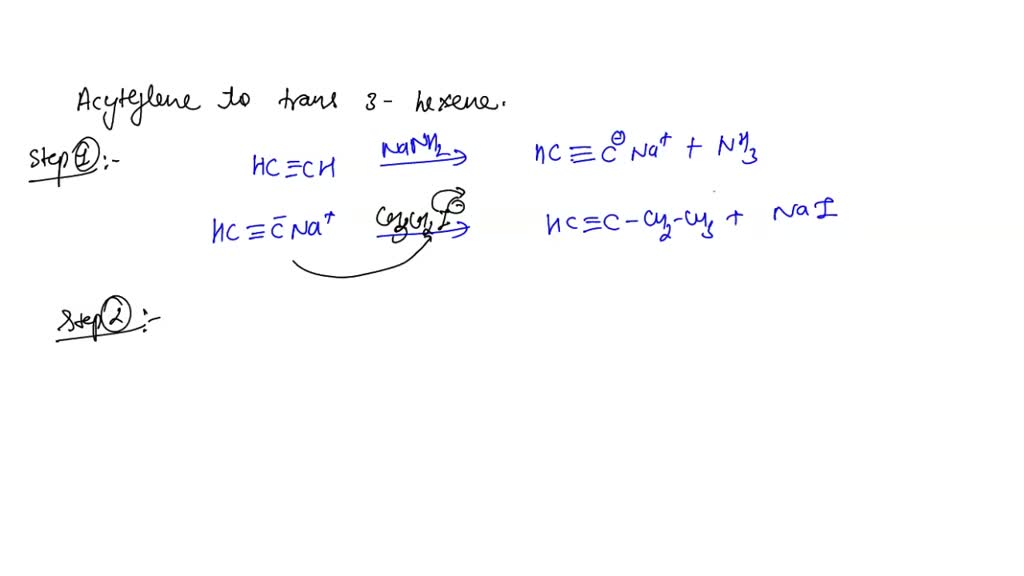 Acytejlene to trans 3- hexene.
Step ①:-
HC≡CH NaNH2 → HC≡C⊖ Na+ + NH3
HC≡C̄ Na+ CH3CH2I⊖ → HC≡C-CH2-CH3 + NaI
Step ②:-